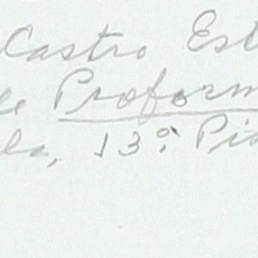 Castro Est
Proform
la, 13º Pis